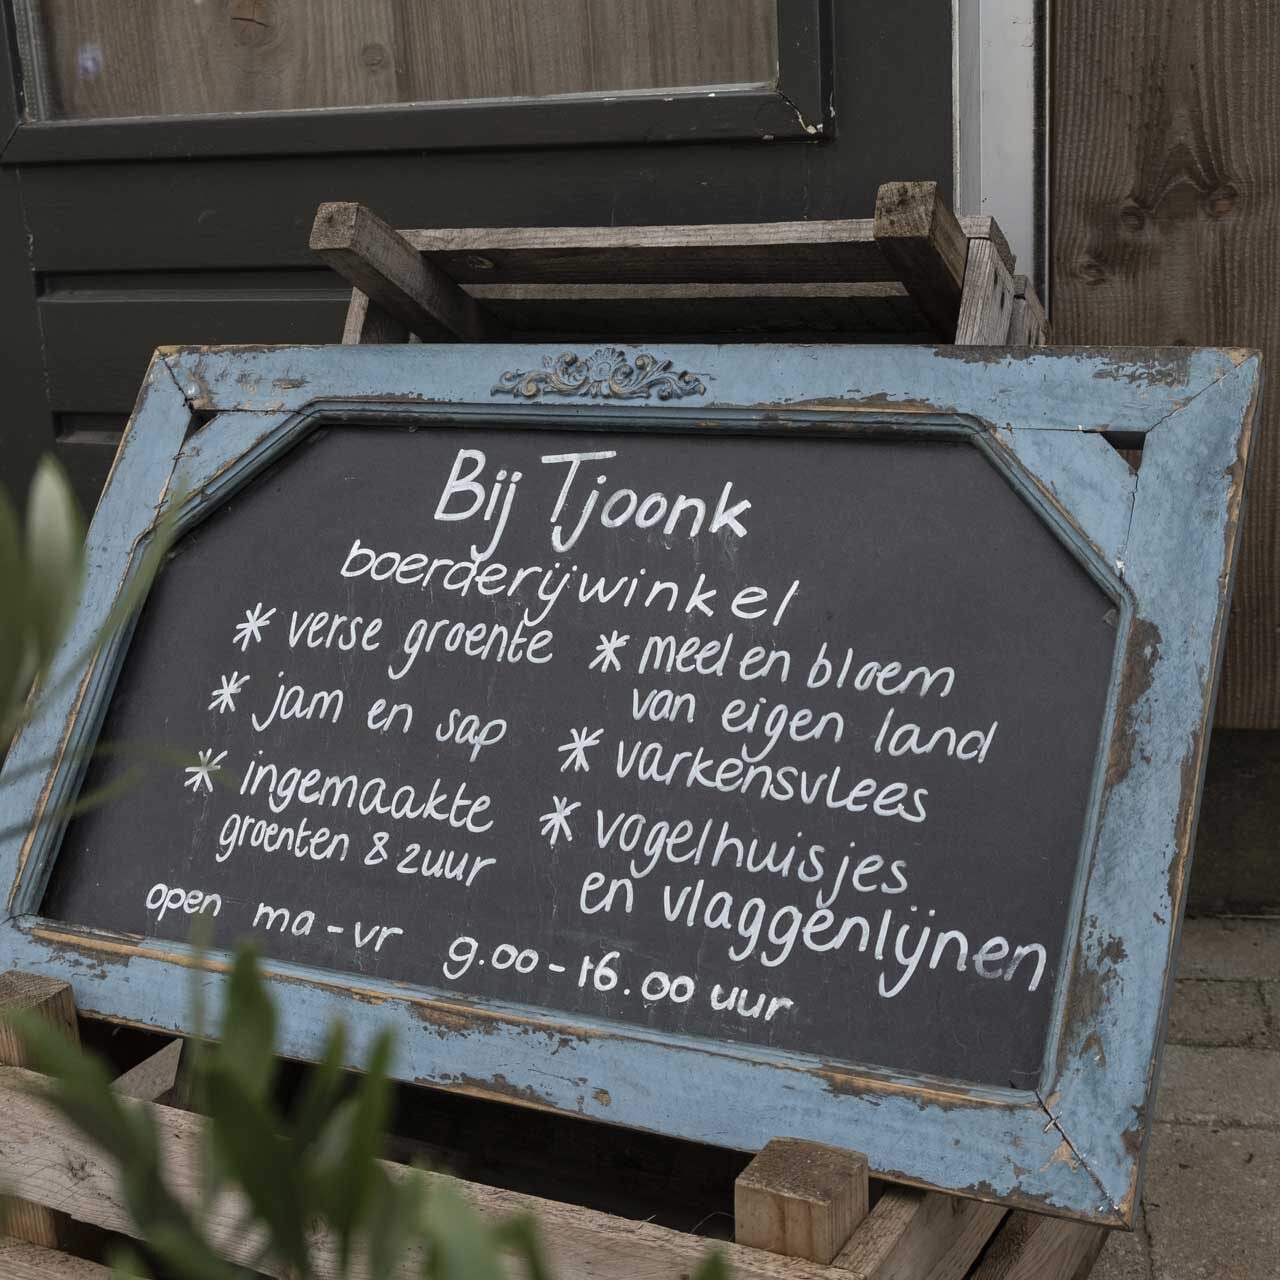 Bij Tjoonk
boerderijwinkel
* verse groente
* jam en sap
* ingemaakte
groenten & zuur
* meel en bloem
van eigen land
* varkensvlees
* vogelhuisjes
en vlaggenlijnen
open ma - vr 9.00 - 16.00 uur